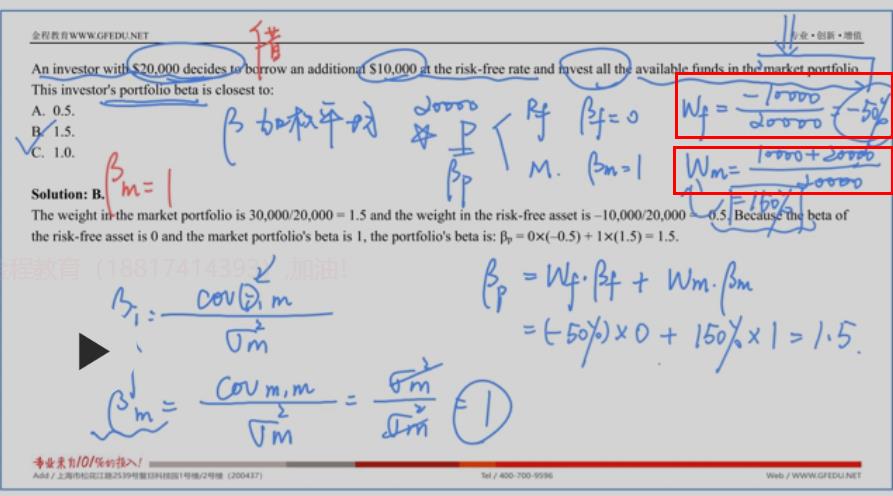 金程教育WWW.GFEDU.NET
专业·创新·增值
借
An investor with $20,000 decides to borrow an additional $10,000 at the risk-free rate and invest all the available funds in the market portfolio.
This investor's portfolio beta is closest to:
A. 0.5.
B. 1.5.
C. 1.0.
β 加权平均
20000
P
βp
Rf βf=0
M. βm=1
Wf = -10000/20000 = -50%
Wm = 10000+20000/20000
=150%
βm=1
Solution: B.
The weight in the market portfolio is 30,000/20,000 = 1.5 and the weight in the risk-free asset is –10,000/20,000 = –0.5. Because the beta of
the risk-free asset is 0 and the market portfolio's beta is 1, the portfolio's beta is: βp = 0×(–0.5) + 1×(1.5) = 1.5.
金程教育（18817414393）,加油！
βi = cov i,m / σm²
βp = Wf·βf + Wm·βm
= (-50%)×0 + 150%×1 = 1.5.
βm = cov m,m / σm² = σm²/σm² = 1
专业来自101%的投入!
Add / 上海市松花江路2539号复旦科技园1号楼/2号楼（200437）
Tel / 400-700-9596
Web / WWW.GFEDU.NET